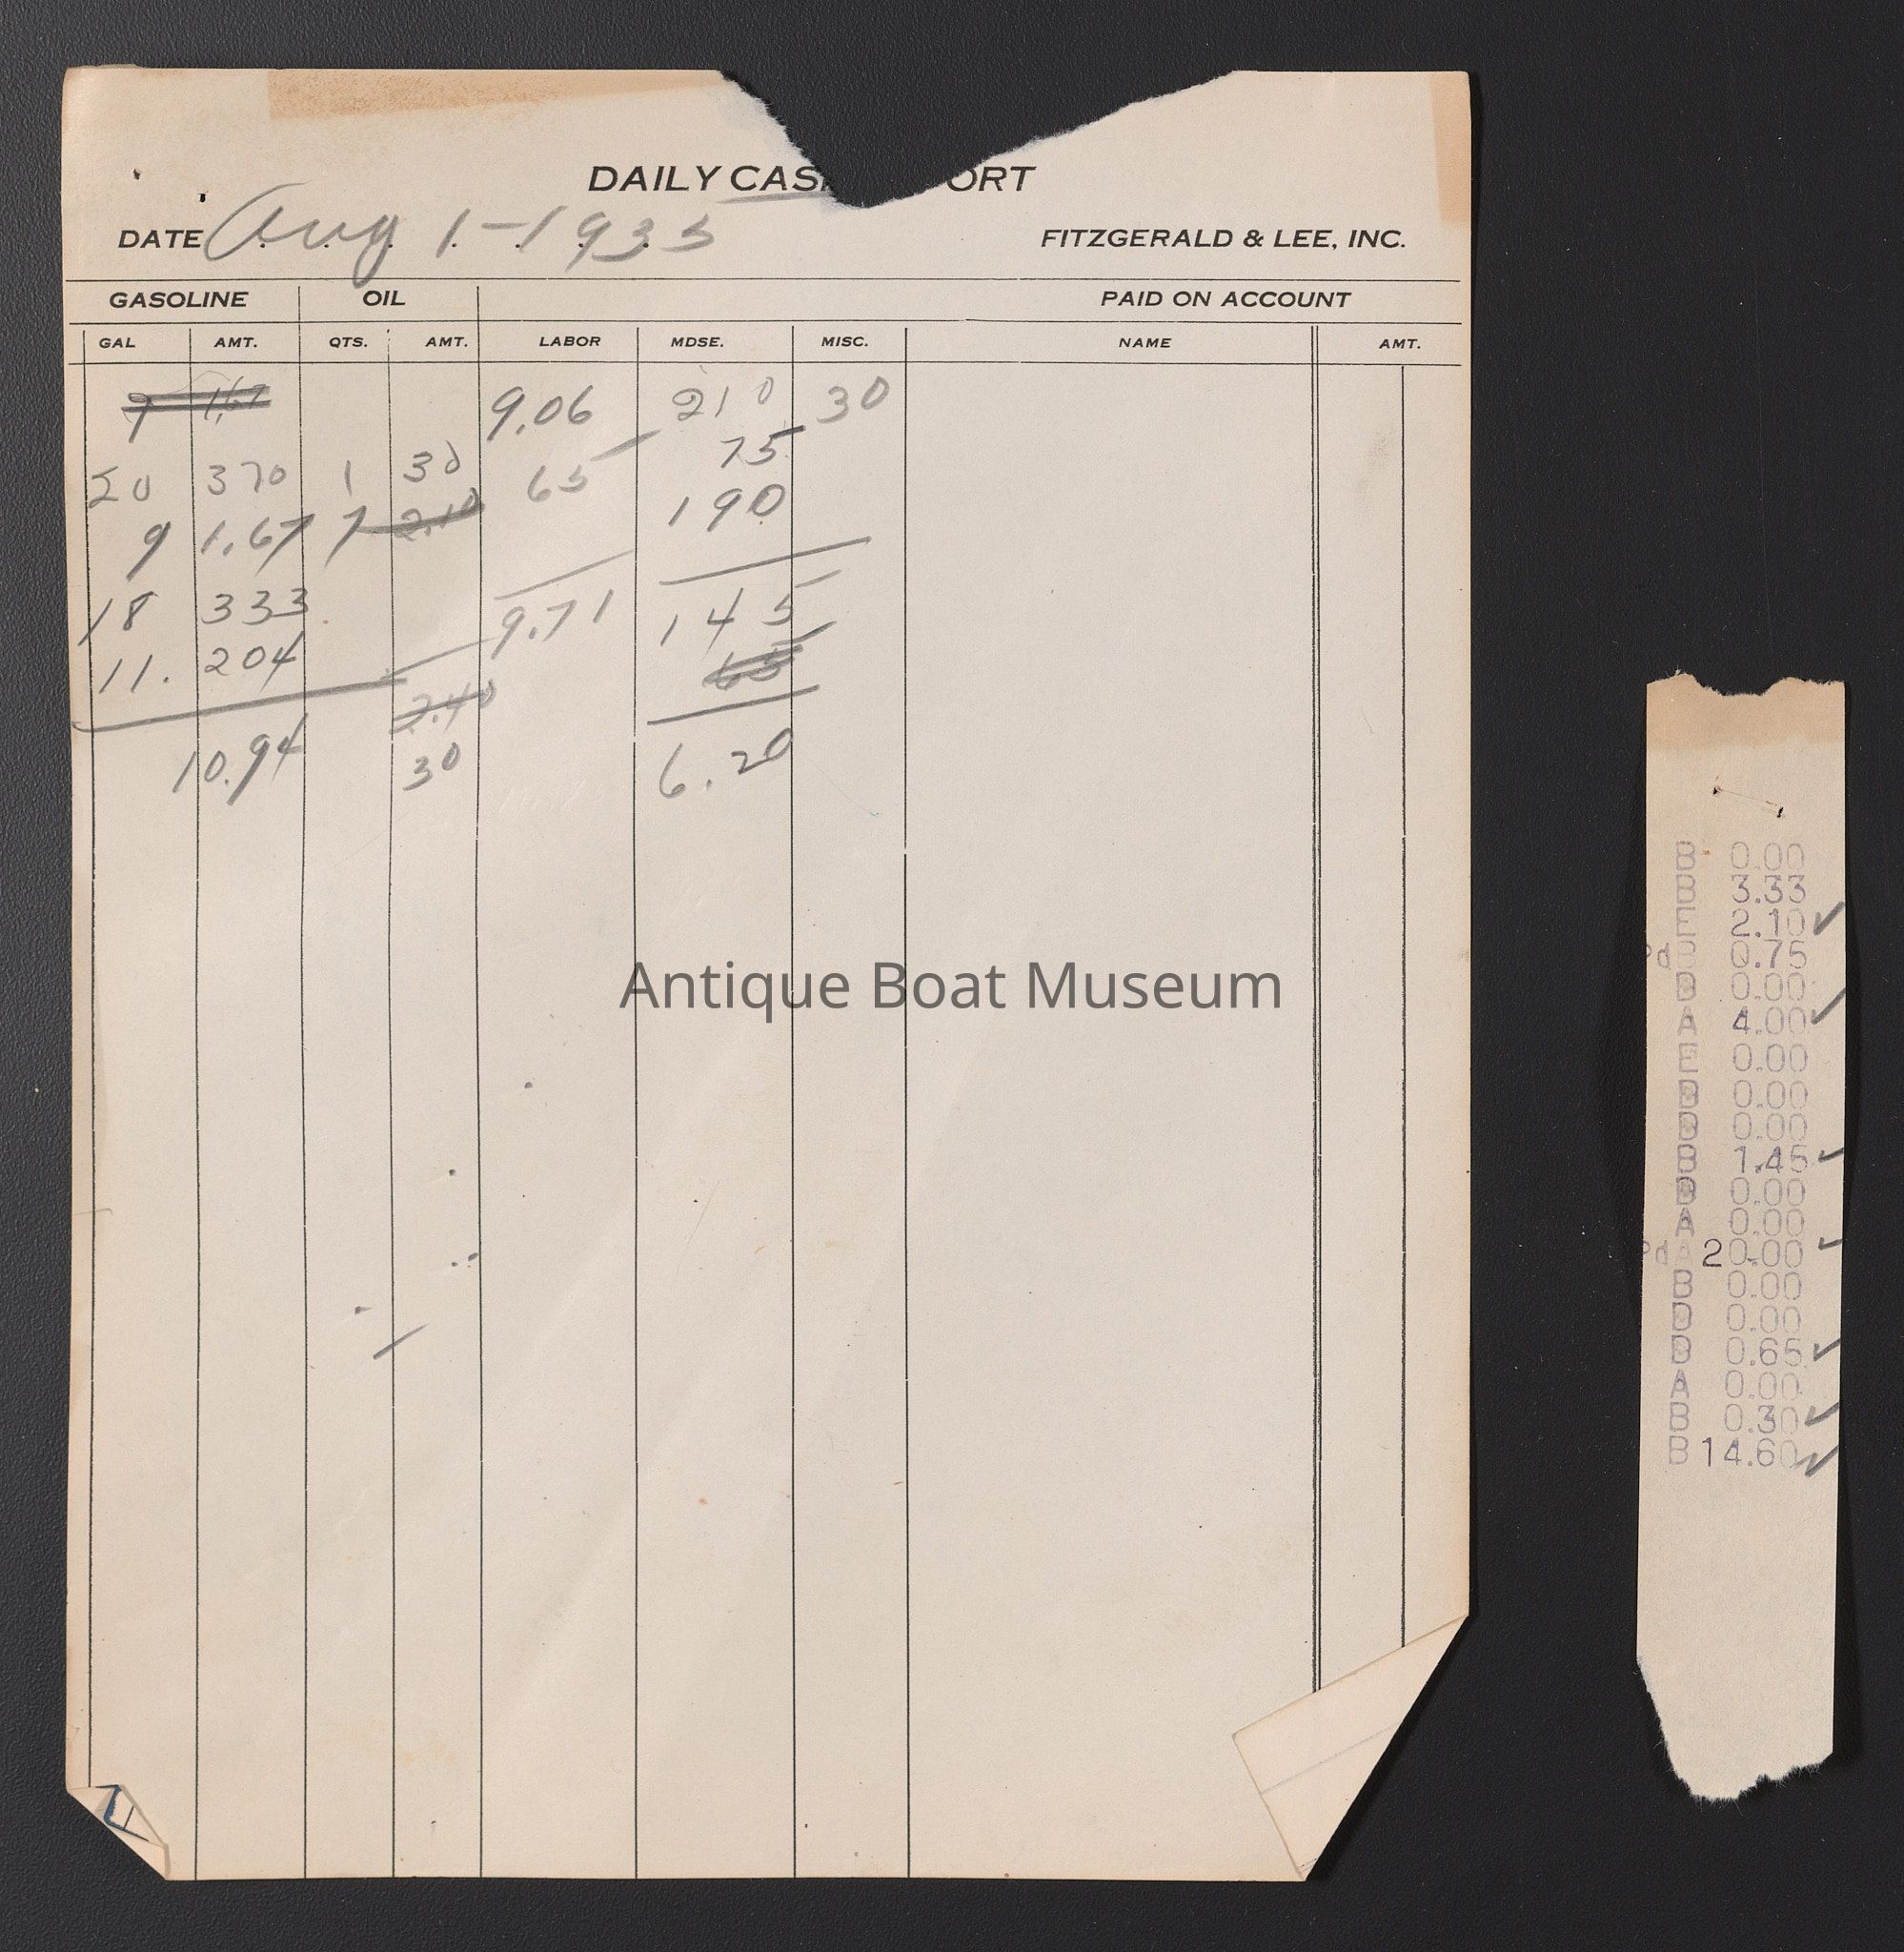 DAILY CAS ORT
DATE Aug 1-1935 FITZGERALD & LEE, INC.
GASOLINE OIL PAID ON ACCOUNT
GAL AMT. QTS. AMT. LABOR MDSE. MISC. NAME AMT.
9 1.67 9.06 210 30
20 370 1 30 65 75
9 1.67 7 2.10 190
18 333 9.71 145
11. 204 65
2.40
10.94 30 6.20
Antique Boat Museum
B 0.00
B 3.33
E 2.10 ✓
Pd 0.75
D 0.00
A 4.00 ✓
E 0.00
D 0.00
D 0.00
B 1.45 ✓
D 0.00
A 0.00
Pd A 20.00 ✓
B 0.00
D 0.00
D 0.65 ✓
A 0.00
B 0.30 ✓
B 14.60 ✓